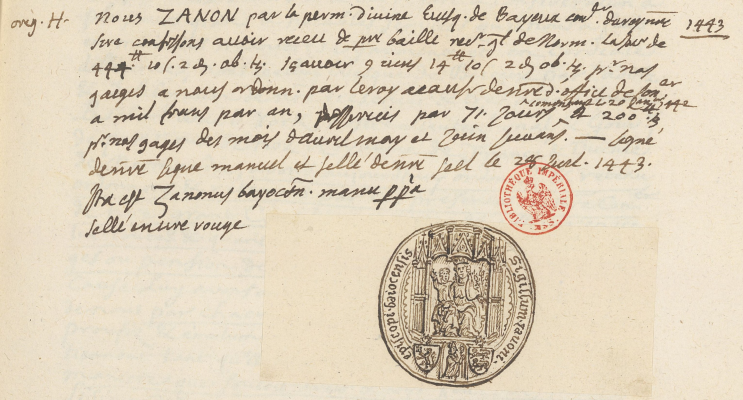 orig. H.
Nous ZANON par la perm. divine Evesq. de Bayeux con.er du roy nre
1443
sire confessons avoir receu de pre baille rec. gl de Norm. la so.e de
10 s. 2 d. ob. tz. savoir 10 s 2 d. ob. tz. pr. nos
gaiges a nous ordon. par le roy a cause de nred. office de con.er
a mil frans par an, desservis par 71. jours
pr. nos gages des mois d'avril may et juin suivans. — signé
de nre signe manuel et sellé de nre seel le 1443.
Ita est Zanonus bayocen. manu ppa
sellé en cire rouge
BIBLIOTHÈQUE IMPÉRIALE MSS.
Sigillum zanoni
episcopi baiocensis